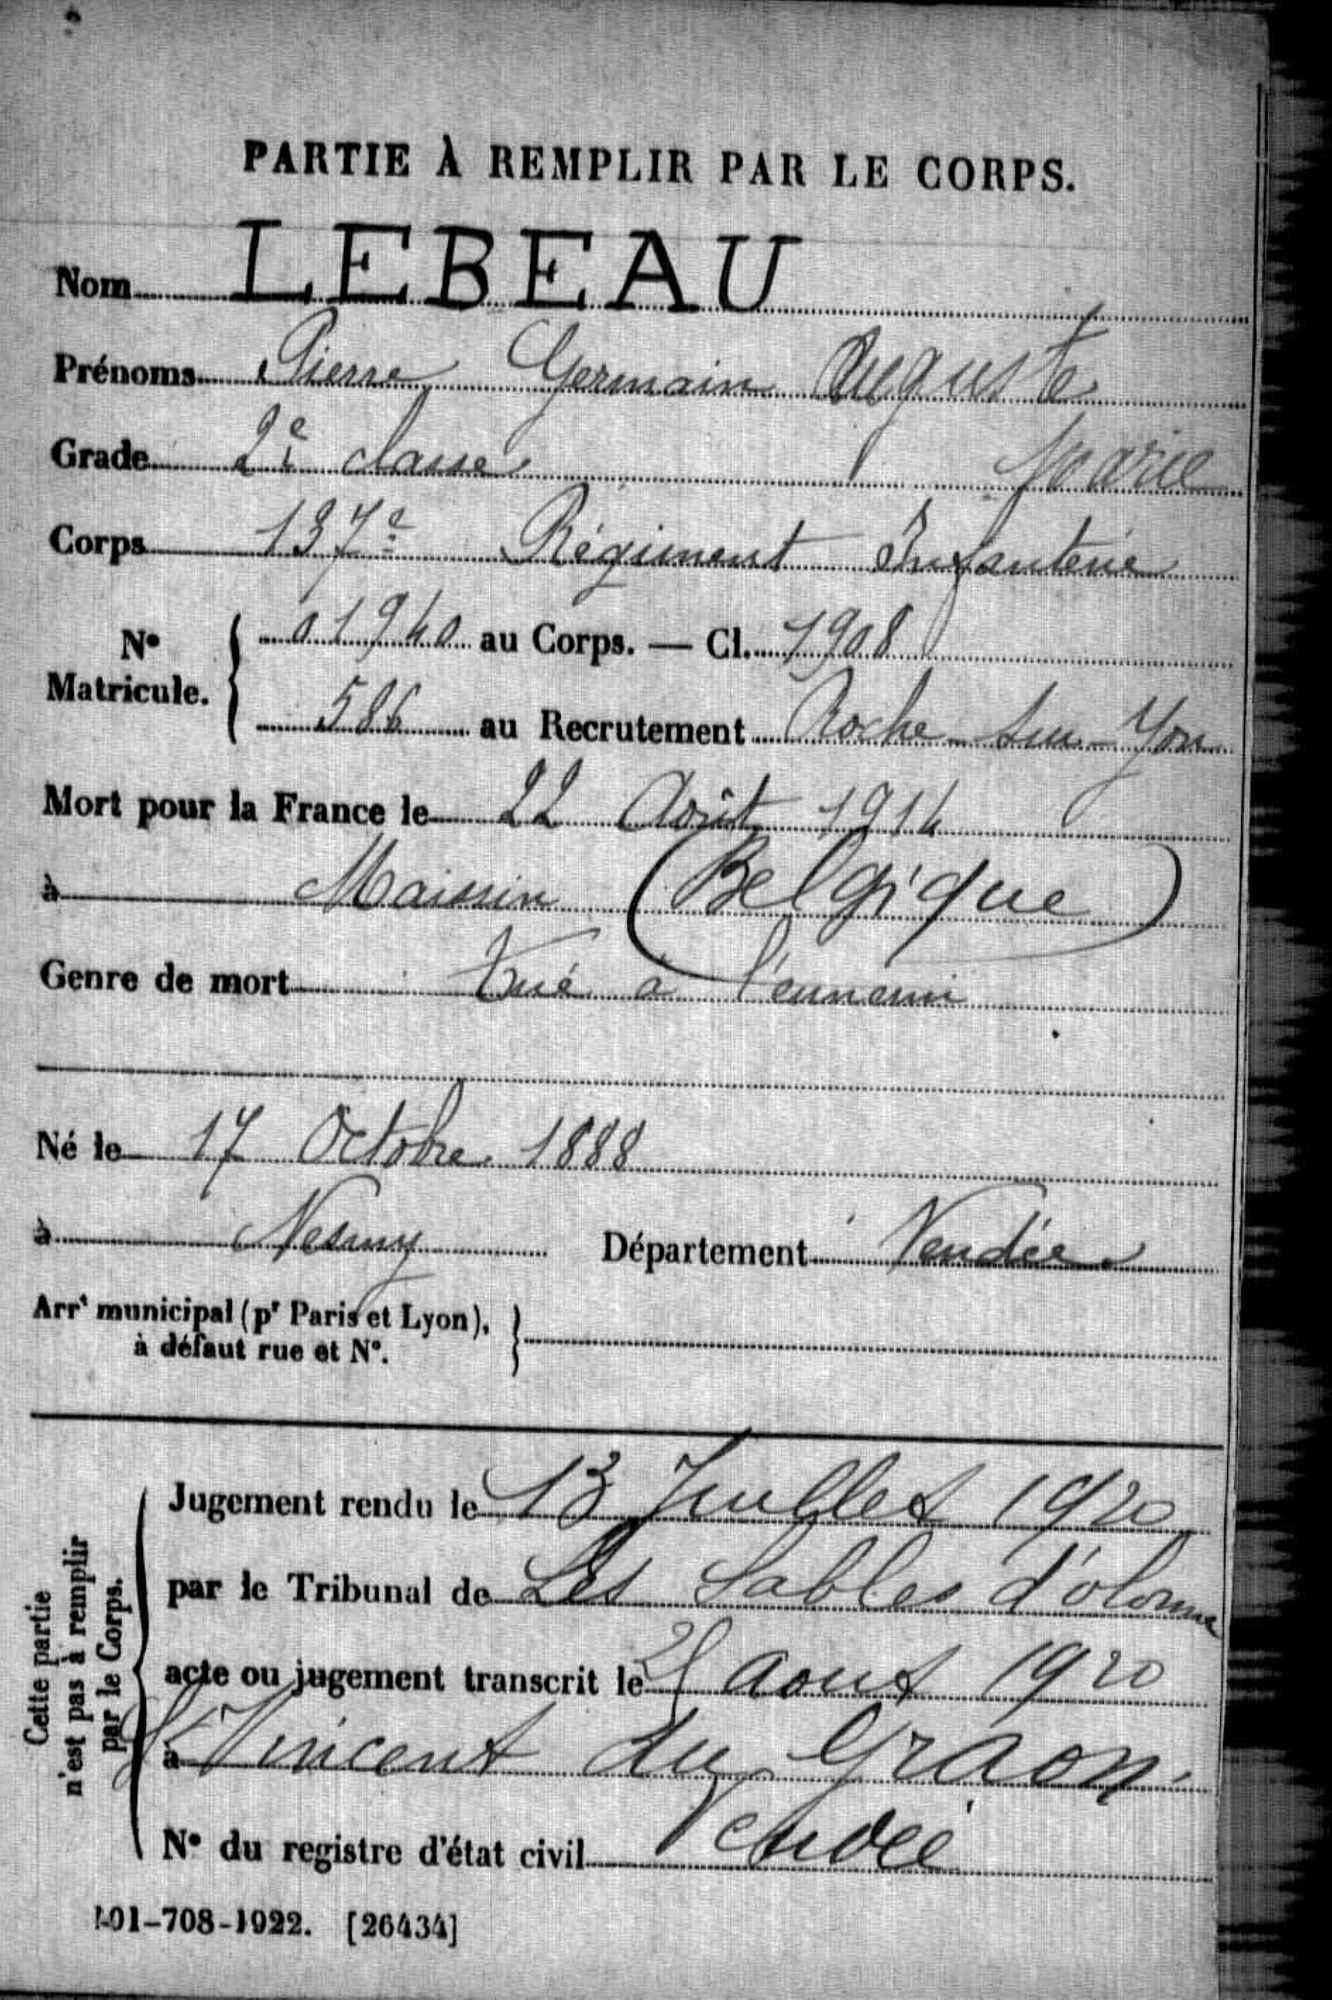 PARTIE À REMPLIR PAR LE CORPS.
Nom LEBEAU
Prénoms Pierre Germain Auguste
Marie
Grade 2e classe
Corps 137e Régiment Infanterie
N° Matricule. 01940 au Corps. — Cl. 1908
586 au Recrutement Roche-sur-Yon
Mort pour la France le 22 Août 1914
à Maissin (Belgique)
Genre de mort Tué à l'ennemi
Né le 17 Octobre 1888
à Nesmy Département Vendée
Arrt municipal (pr Paris et Lyon),
à défaut rue et N°.
Cette partie
n'est pas à remplir
par le Corps.
Jugement rendu le 13 Juillet 1920
par le Tribunal de Les Sables d'olonne
acte ou jugement transcrit le aout 1920
à St Vincent du Graon
Vendée
N° du registre d'état civil
101-708-1922. [26434]